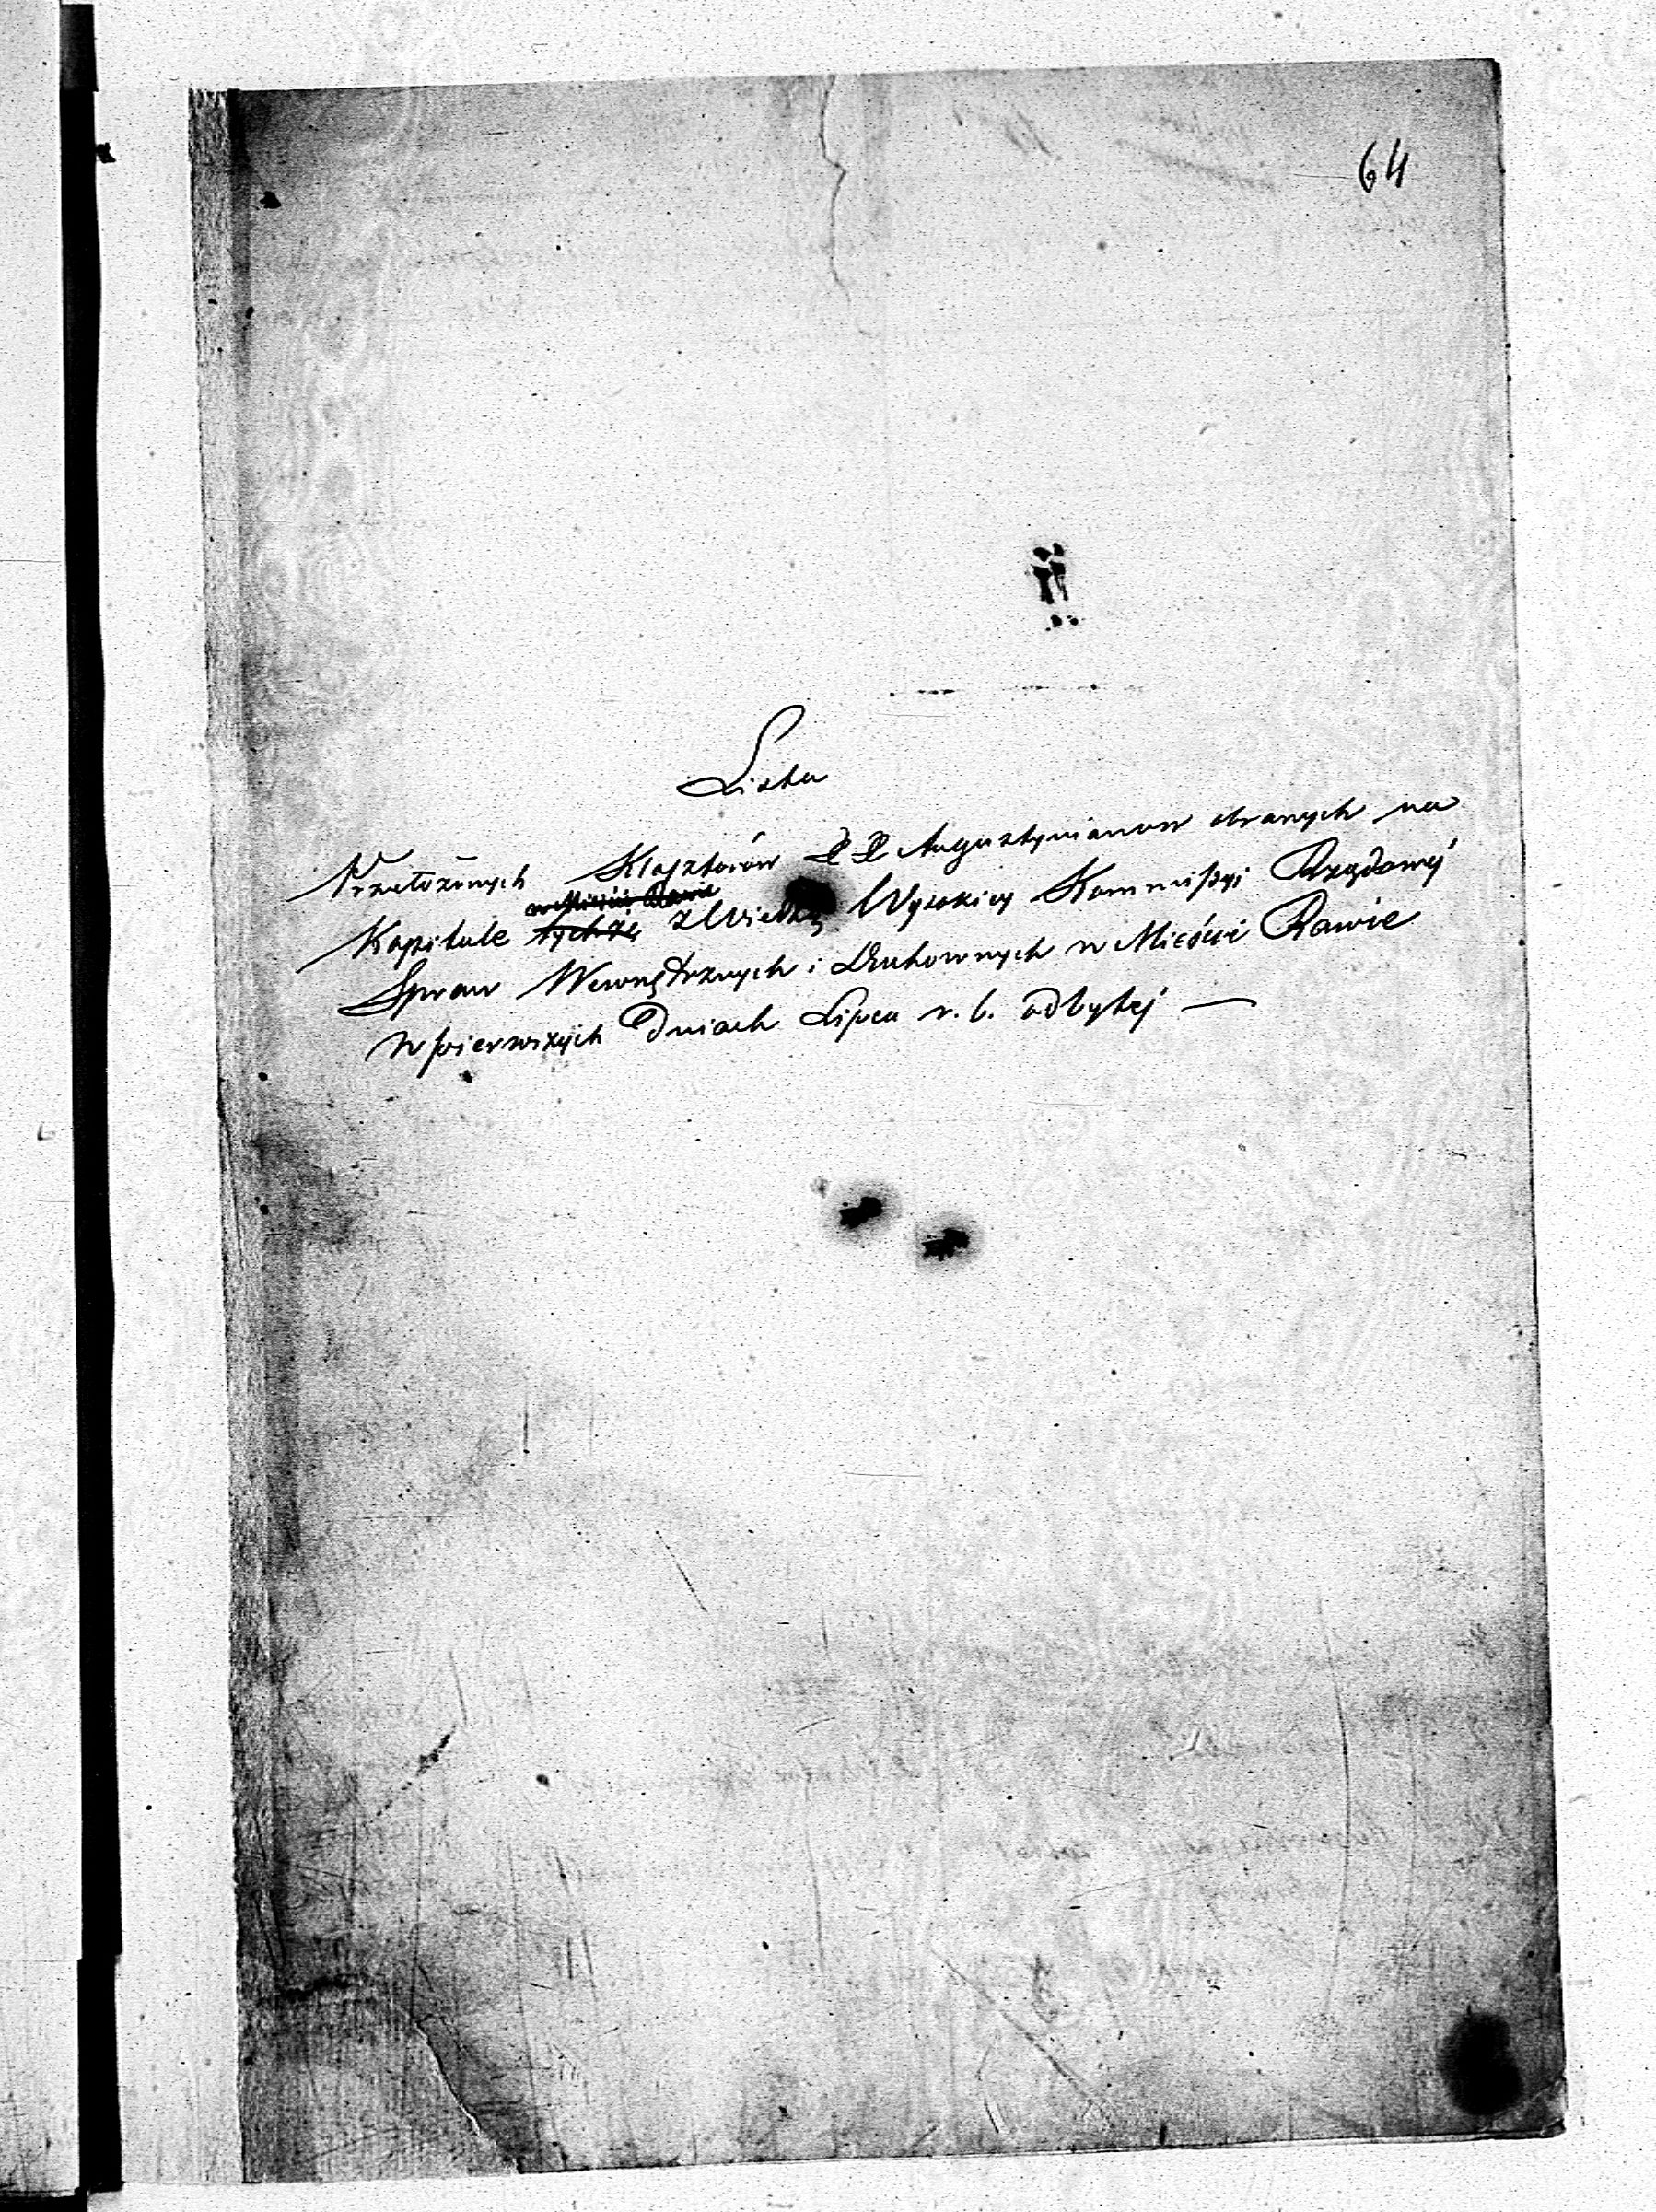 64
Lista
Przełożonych Klasztorów XX Augustynianow obranych na
w Mieście Rawie
Kapitule tychże z Wiedzą Wysokiey Kommissyi Rządowéj
Spraw Wewnętrznych i Duchownych w Mieście Rawie
w pierwszych Dniach Lipca r. b. odbytéj —